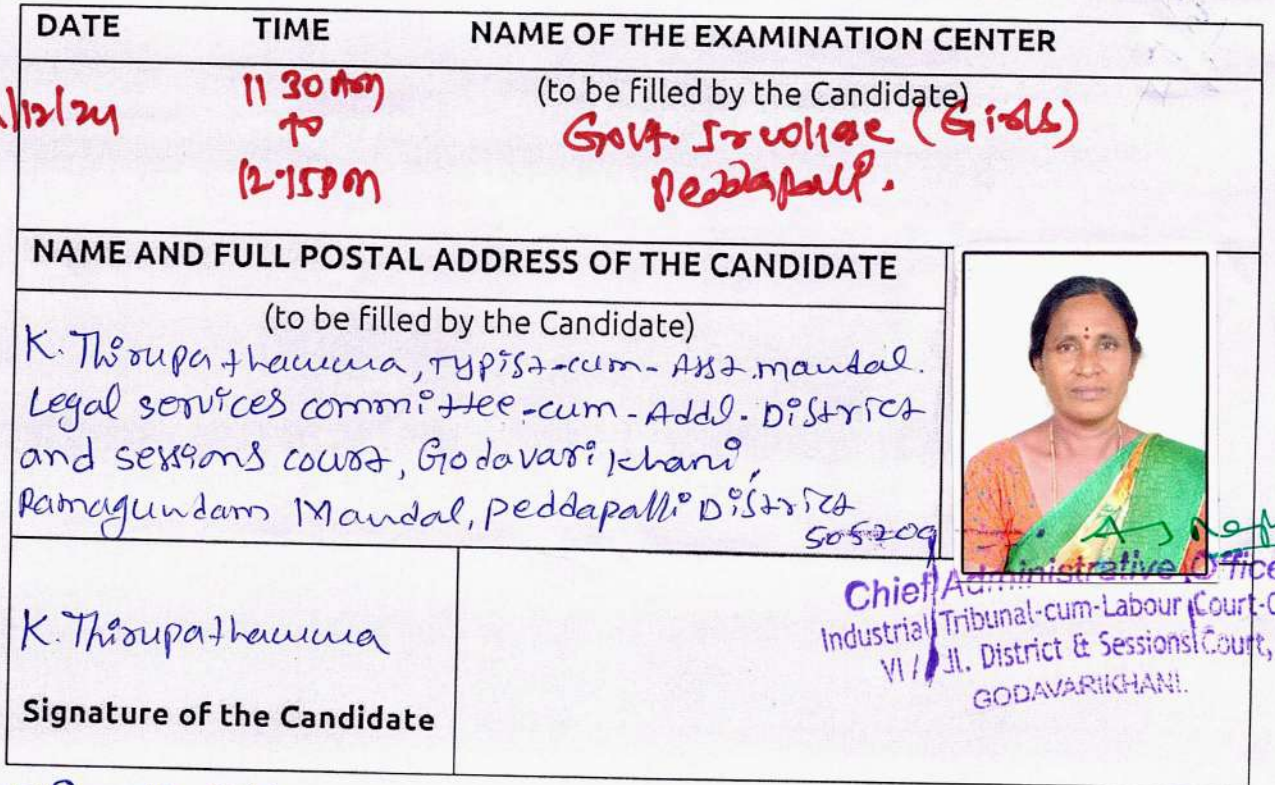 DATE TIME NAME OF THE EXAMINATION CENTER
(to be filled by the Candidate)
/12/24 11 30 AM to 12.15 PM
Govt. Jr college (Girls)
Peddapalli.
NAME AND FULL POSTAL ADDRESS OF THE CANDIDATE
(to be filled by the Candidate)
K. Thirupathamma, Typist-cum-Asst. mandal.
Legal services committee-cum-Addl. District
and sessions court, Godavari khani,
Ramagundam Mandal, peddapalli District
505209
K. Thirupathamma
Signature of the Candidate
Chief Administrative Office
Industrial Tribunal-cum-Labour Court-C
VI / Jl. District & Sessions Court,
GODAVARIKHANI.